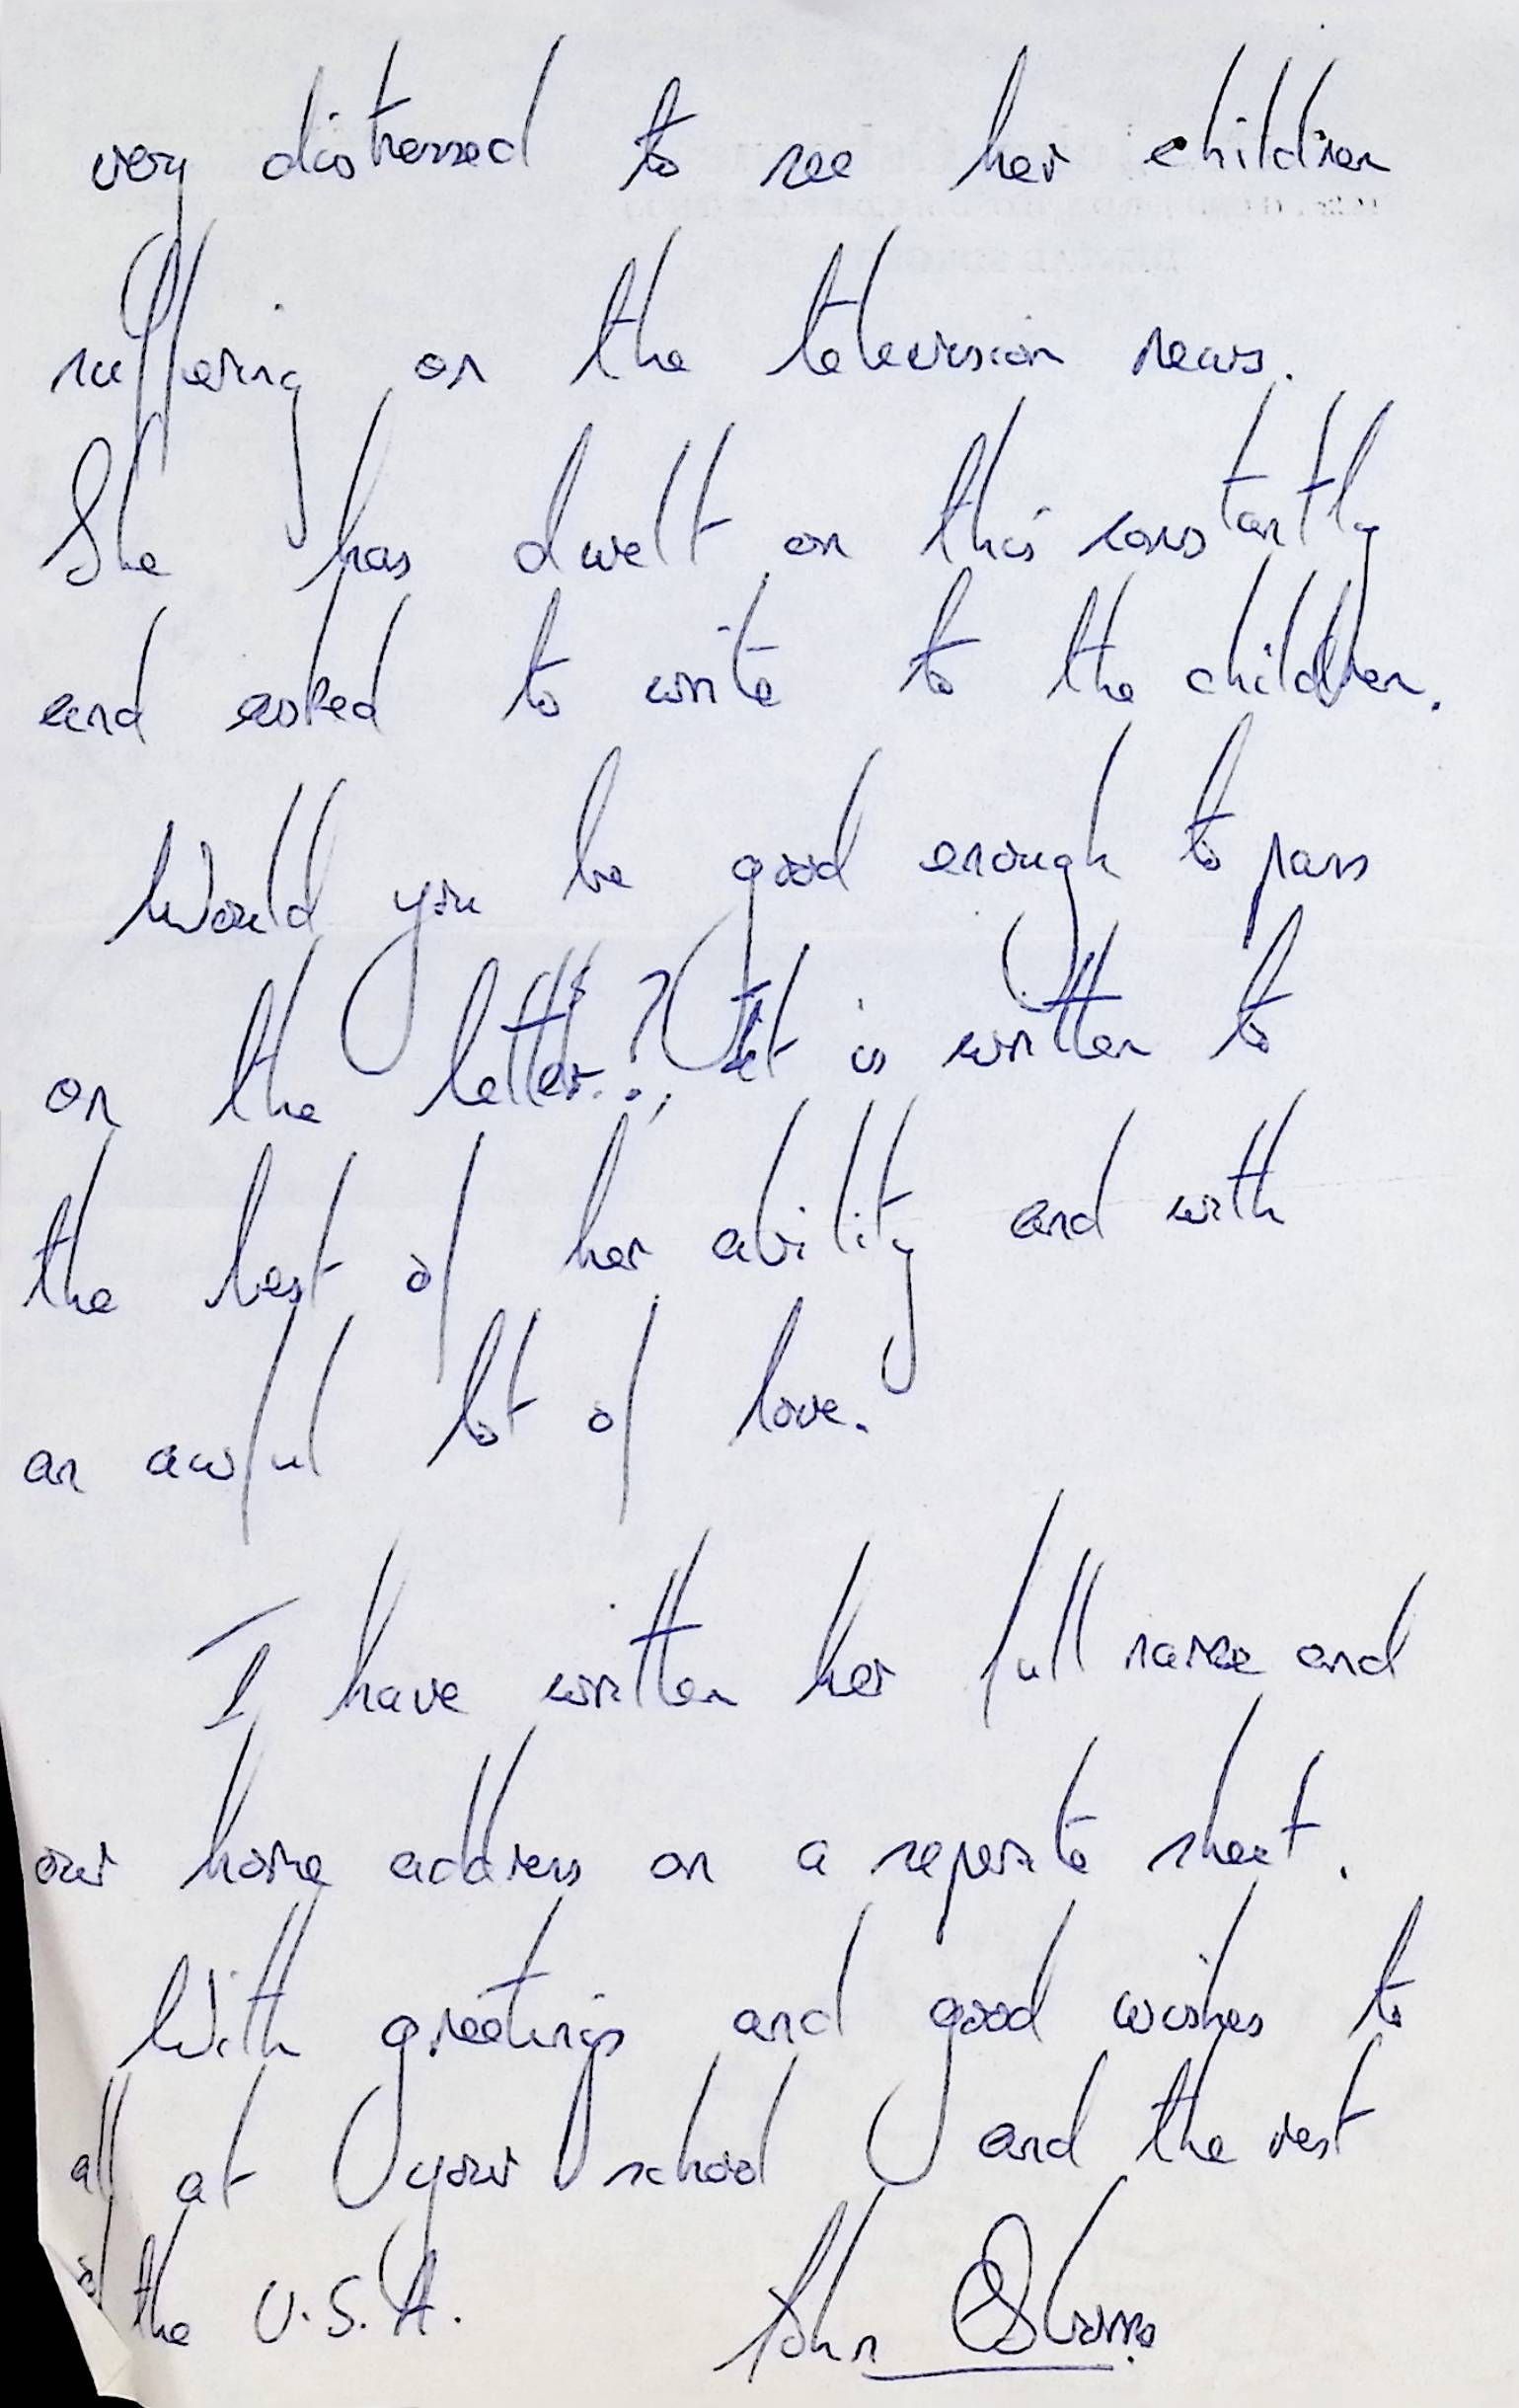 very distressed to see her children
suffering on the television news.
She has dwelt on this constantly
and asked to write to the children.
Would you be good enough to pass
on the letter? It is written to
the best of her ability and with
an awful lot of love.
I have written her full name and
our home address on a seperate sheet.
With greetings and good wishes to
all at your school and the rest
of the U.S.A. John